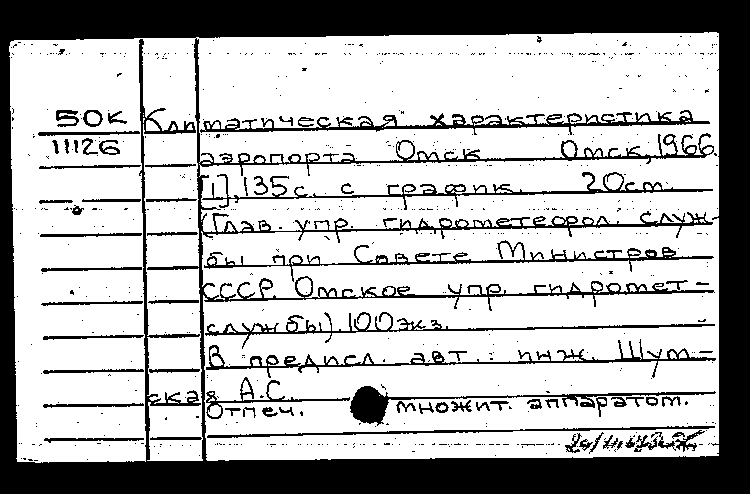 50К Климатическая характеристика
11126 аэропорта Омск Омск, 1966.
[1], 135 с. с график. 20 см.
(Глав. упр. гидрометеорол. служ-
бы при Совете Министров
СССР. Омское упр. гидромет-
службы). 100 экз.
В предисл. авт.: инж. Шум-
ская А.С.
Отпеч. множит. аппаратом.